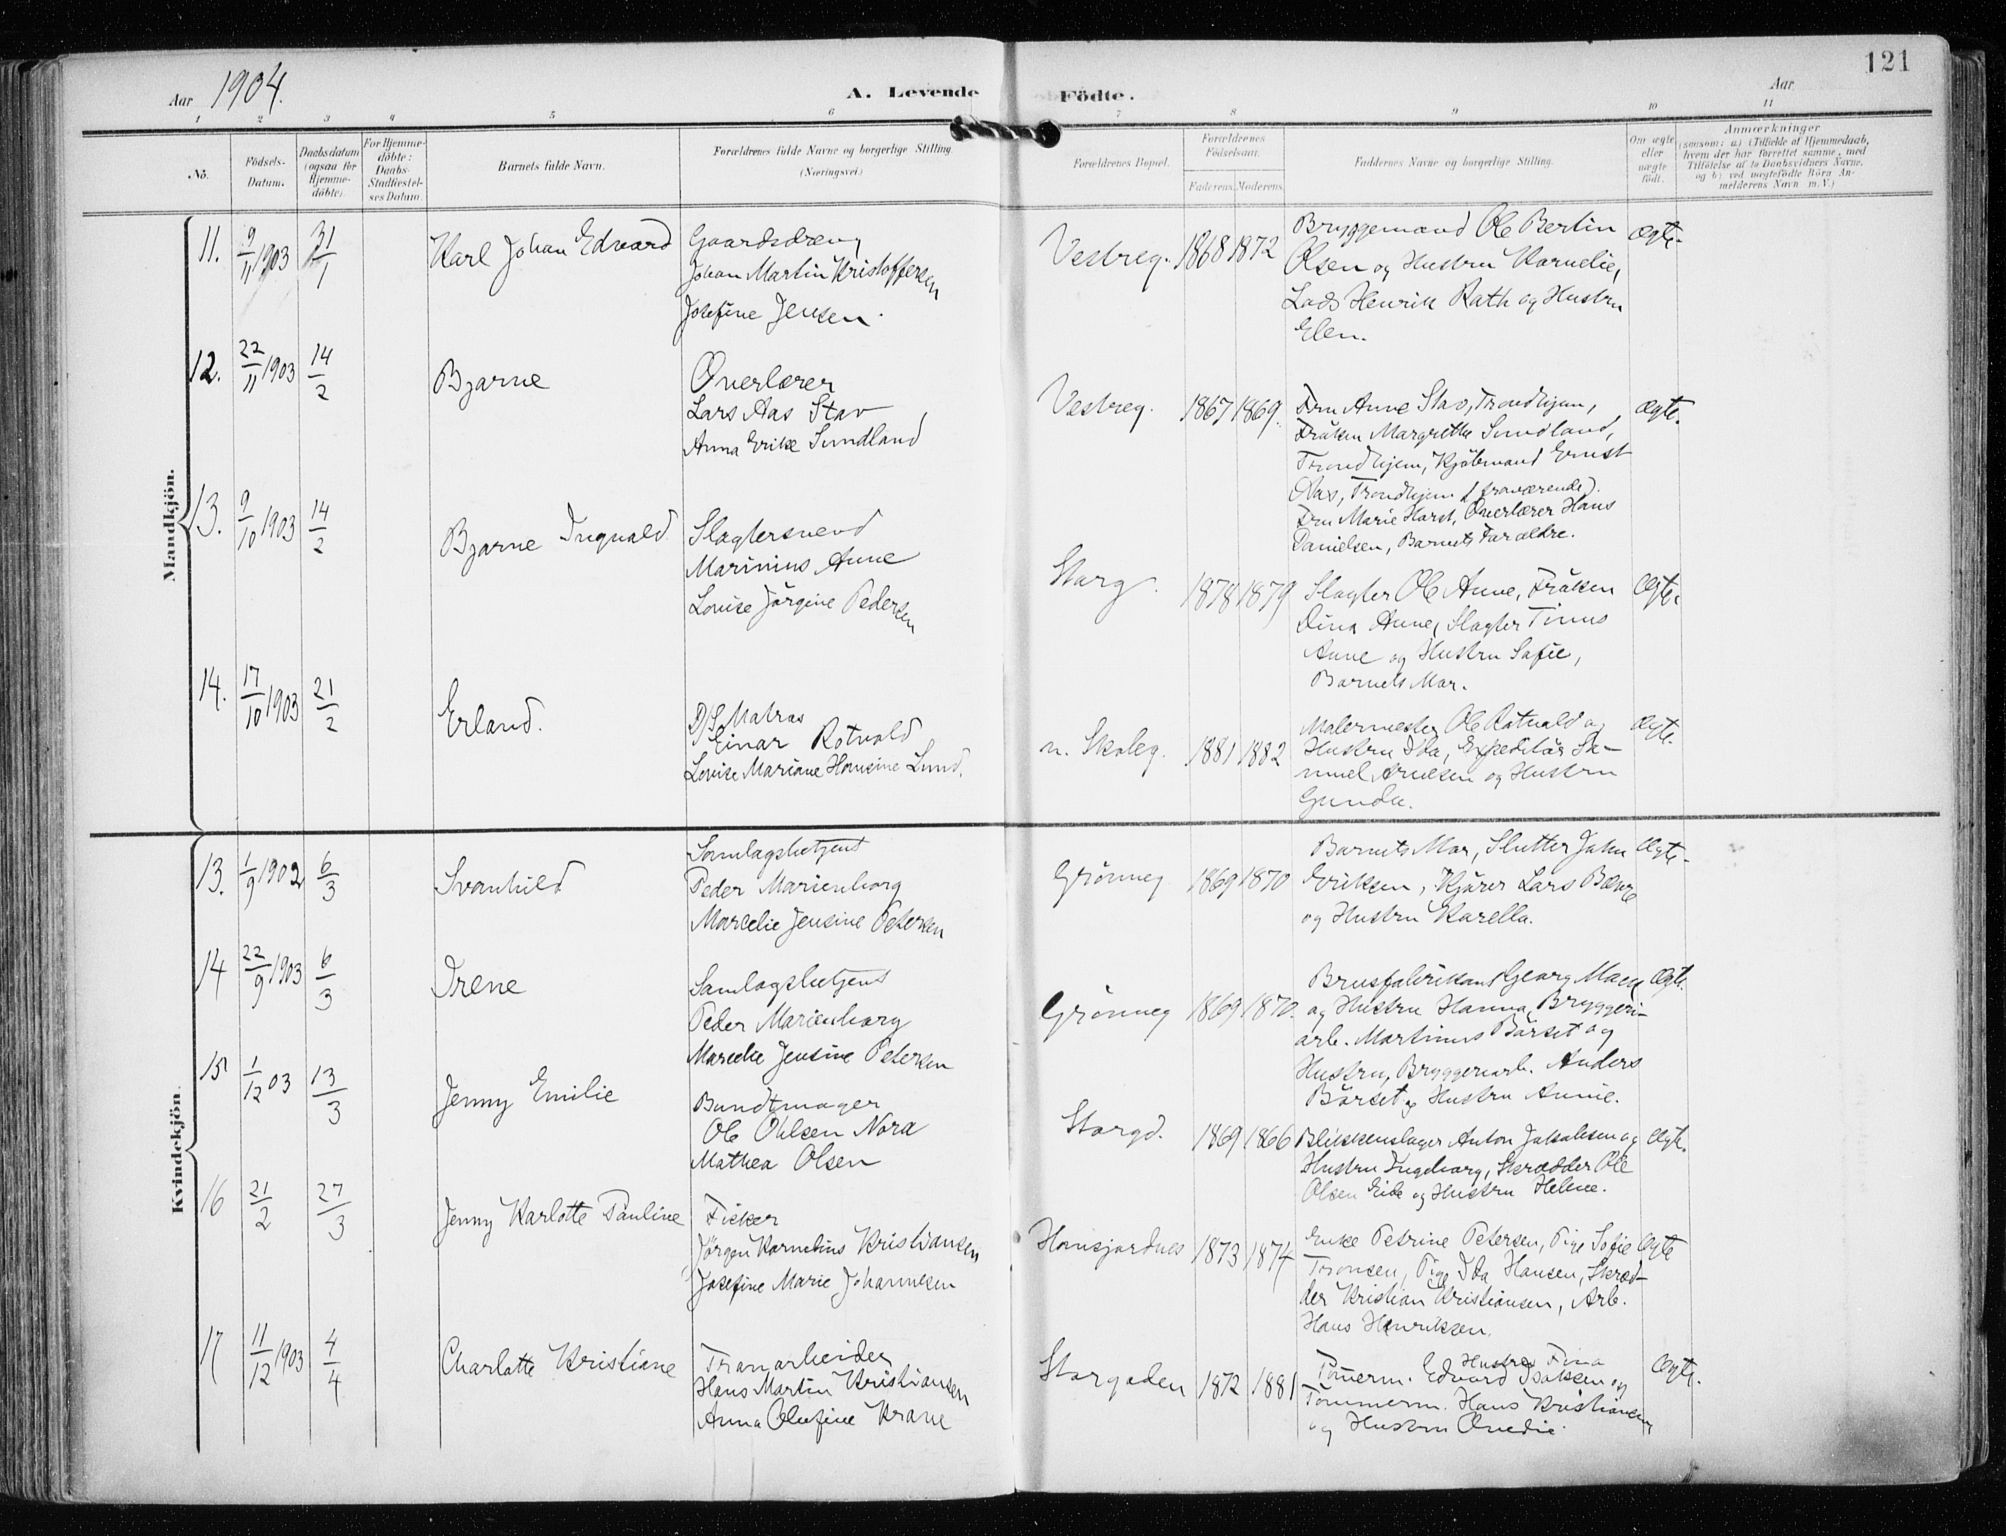 121
Aar 1904.
A. Levende Födte.
Aar
1 2 3 4 5 6 7 8 9 10 11
No.
Födsels-Datum.
Daabsdatum (ogsaa for Hjemme-döbte).
For Hjemme-döbte: Daabs-Stadfæstel-ses Datum
Barnets fulde Navn.
Forældrenes fulde Navne og borgerlige Stilling.
(Næringsvei)
Forældrenes Bopæl.
Forældrenes Födselsaar.
Faderens. Moderens.
Faddernes Navne og borgerlige Stilling.
Om ægte eller uægte födt.
Anmærkninger
(saasom: a) i Tilfælde af Hjemmedaab, hvem der har forrettet samme, med Tilföielse af to Daabsvidners Navne, og b) ved uægtefödte Börn An-melderens Navn m. V.)
Mandkjön.
11. 9/11 1903 31/1 Karl Johan Edvard
Gaardsdreng
Johan Martin Kristoffersen
Josefine Jensen.
Vestreg. 1868 1872
Bryggemand Ole Bertin
Olsen og Hustru Kornelie,
Lads Henrik Rath og Hustru
Elen.
Ægte.
12. 22/11 1903 14/2 Bjarne
Overlærer
Lars Aas Stav
Anna Erike Sundland
Vestreg. 1867 1869.
Fru Anne Stav, Trondhjem,
Fröken Margrethe Sundland,
Trondhjem, Kjöbmand Ernst
Aas, Trondhjem (fraværende).
Fru Marie Horst, Overlærer Hans
Danielsen, Barnets Forældre.
Ægte.
13. 9/10 1903 14/2 Bjarne Ingvald
Slagtersvend
Marinius Aune
Lovise Jörgine Pedersen
Storg. 1878 1879
Slagter Ole Aune, Fröken
Dina Aune, Slagter Tinus
Aune og Hustru Sofie,
Barnets Mor.
Ægte.
14. 17/10 1903 21/2 Erland.
D/S Matros
Einar Rotvold
Lovise Mariane Hansine Lund.
n. Skoleg. 1881 1882
Malermester Ole Rotvold og
Hustru Ida, Expeditör Sa-
muel Arnesen og Hustru
Gunda.
Ægte.
Kvindekjön.
13. 1/9 1902 6/3 Svanhild
Samlagsbetjent
Peder Marienborg
Marcelie Jensine Petersen
Grönneg 1869 1870
Barnets Mor, Slutter Johan
Eriksen, Kjörer Lars
og Hustru Karella.
Ægte.
14 22/9 1903 6/3 Irene
Samlagsbetjent
Peder Marienborg
Marcelie Jensine Petersen
Grönneg 1869 1870.
Brusfabrikant Georg Mack
og Hustru Hanna, Bryggeri-
arb. Martinus Börset og
Hustru, Bryggeriarb. Anders
Börset og Hustru Annie.
Ægte.
15 1/12 03 13/3 Jenny Emilie
Bundtmager
Ole Ohlsen Nora
Mathea Olsen
Storgd. 1869 1866
Blikkenslager Anton Jakobsen og
Hustru Ingeborg, Skrædder Ole
Olsen Eide og Hustru Helene.
Ægte.
16 21/2 27/3 Jenny Karlotte Pauline
Fisker
Jörgen Kornelius Kristiansen
Josefine Marie Johannesen
Hansjordnes 1873 1874
Enke Petrine Petersen, Pige Sofie
Toronsen, Pige Ida Hansen, Skræd-
der Kristian Kristiansen, Arb.
Hans Henriksen.
Ægte
17 11/12 1903 4/4 Charlotte Kristiane
Tranarbeider
Hans Martin Kristiansen
Anna Olufine Krane
Storgaden 1872 1881
Hustru Fina
Tömerm. Edvard Isaksen og
Tömmerm. Hans Kristiansen
og Hustru Ovedie.
Ægte.